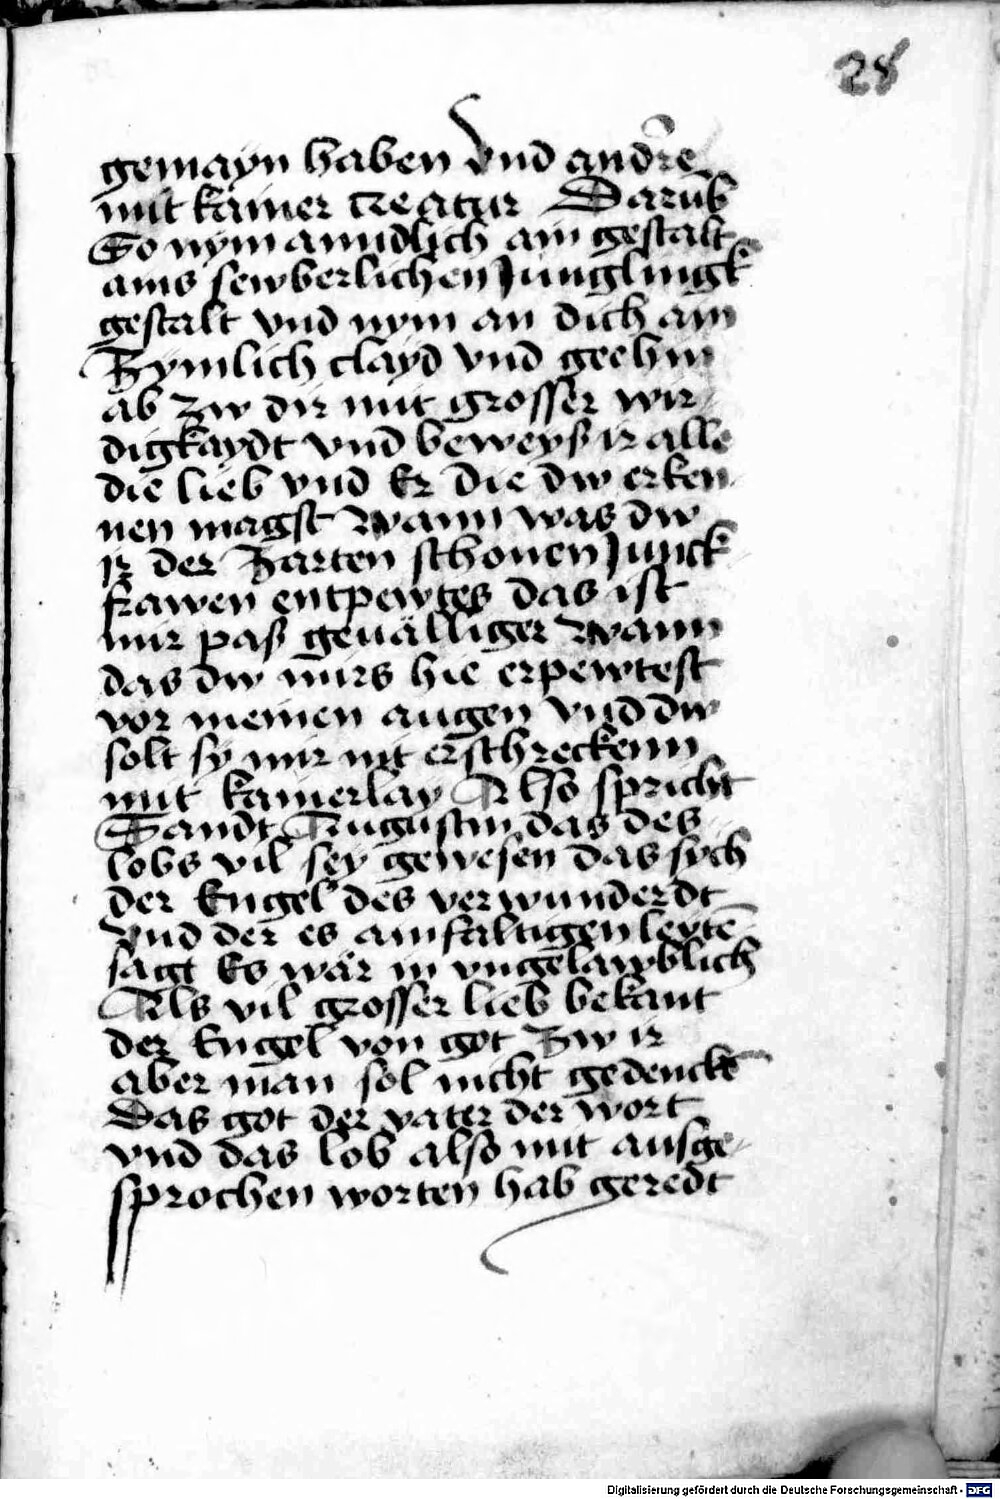 28
gemayn haben Vnd andre
mit kainer creatur Darub
So nym anndlich ain gestalt
ains sewberlichen Junglingk
gestalt vnd nym an dich ain
Zymlich clayd vnd gee hin
ab zw dir mit grosser wir
digkaydt vnd beweyß ir alle
die lieb vnd Er die dw erken
nen magst Wann was dw
ir der Zarten schonen Junck
frawen entpewtes das ist
mir paß geuälliger Wann
das dw mirs hie erpewtest
vor meinen augen vnd dw
solt sy mir nit erschreckenn
mit kainerlay Also spricht
Sandt Augustin das des
lobs vil sey gewesen das sych
der Engel des verwunderdt
vnd der es ainfaltigen leytē
sagt Es wär in vngelawblich
Als vil grosser lieb bekant
der Engel von got Zw ir
aber man sol nicht gedenckē
Das got der vater der wort
vnd das lob also mit ausge
sprochen worten hab geredt
Digitalisierung gefördert durch die Deutsche Forschungsgemeinschaft - DFG